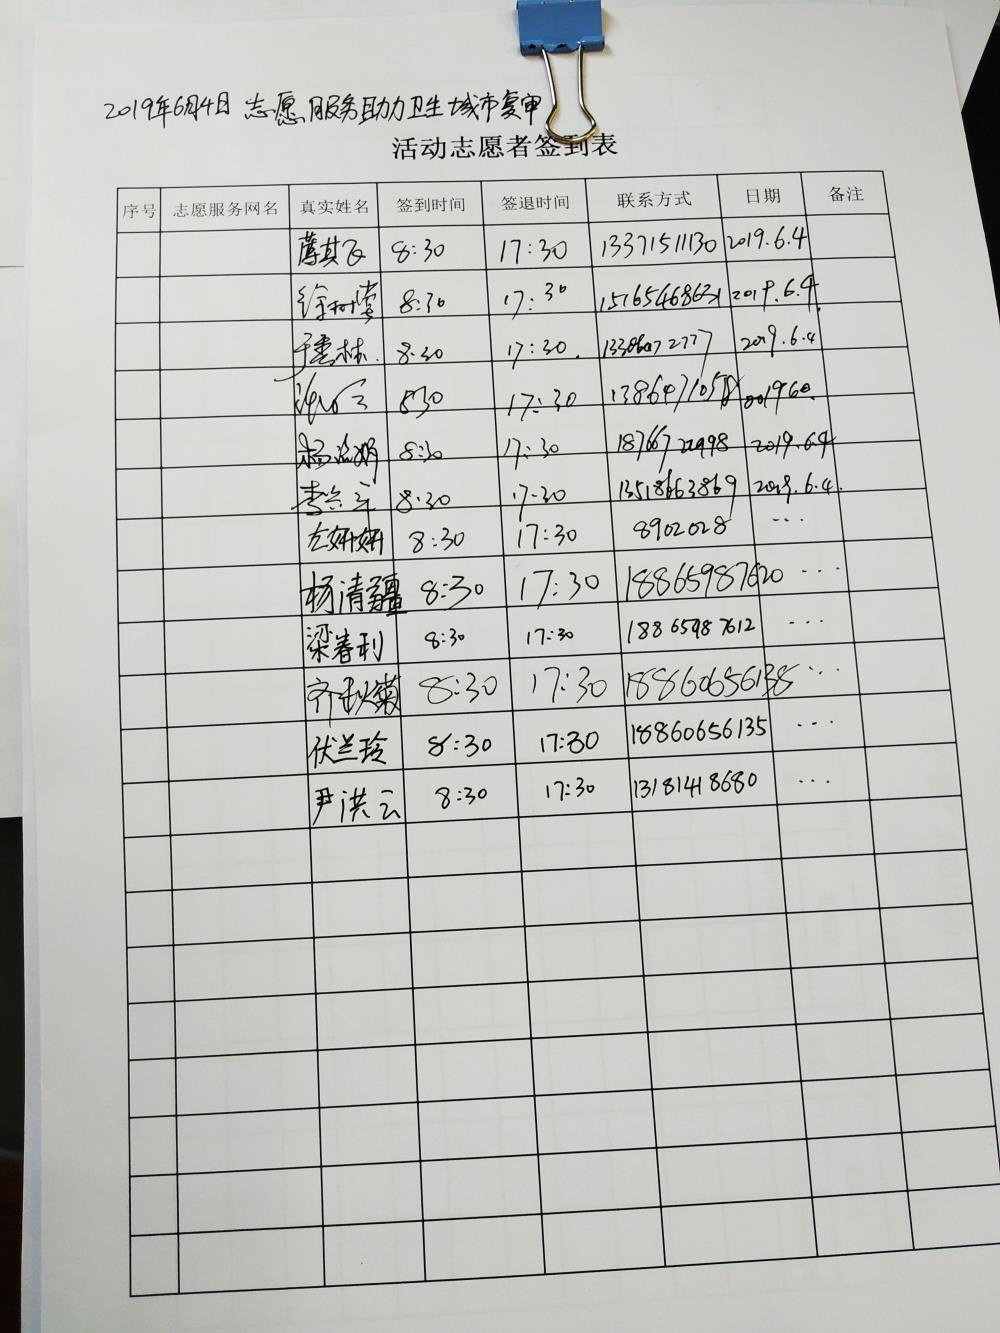 2019年6月4日 志愿服务助力卫生城市复审
活动志愿者签到表
序号 志愿服务网名 真实姓名 签到时间 签退时间 联系方式 日期 备注
8:30 17:30 13371511130 2019.6.4
8:30 17:30 15165468631 2019.6.4
8:30 17:30. 2019.6.4
830 17:30
8:30 17:30 2019.6.4
8:30 17:30 13518663869 2019.6.4.
左妍妍 8:30 17:30 8902028 ...
杨清疆 8:30 17:30 18865987620 ...
梁春利 8:30 17:30 18865987612 ...
齐秋菊 8:30 17:30 18860656138 ...
伏兰玲 8:30 17:30 18860656135 ...
尹洪云 8:30 17:30 13181418680 ...